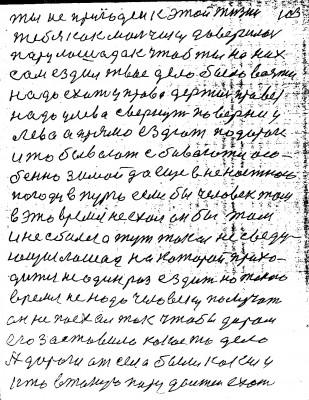 ты не приходен к этой жизни 103
тебя как мальчику доверили
пару лошадок чтоб ты на них
сам ездил твое дело было вожжи
надо ехать управо держи управо
надо улева свернуть поверни у
лева а прямо ездют по дороге
и то бывают сбиваются осо-
бенно зимой да еще в ненастную
погоду в пургу если бы человек там
в это время не ехал он бы там
и не сбился тут такая не сведу-
ющия лошад на которой прихо-
дится не один раз ездит но такое
время не надо человеку
он не поехал так чтобы даром
его заставило какое то дело
А дороги от села были какие у
есть в такую пору